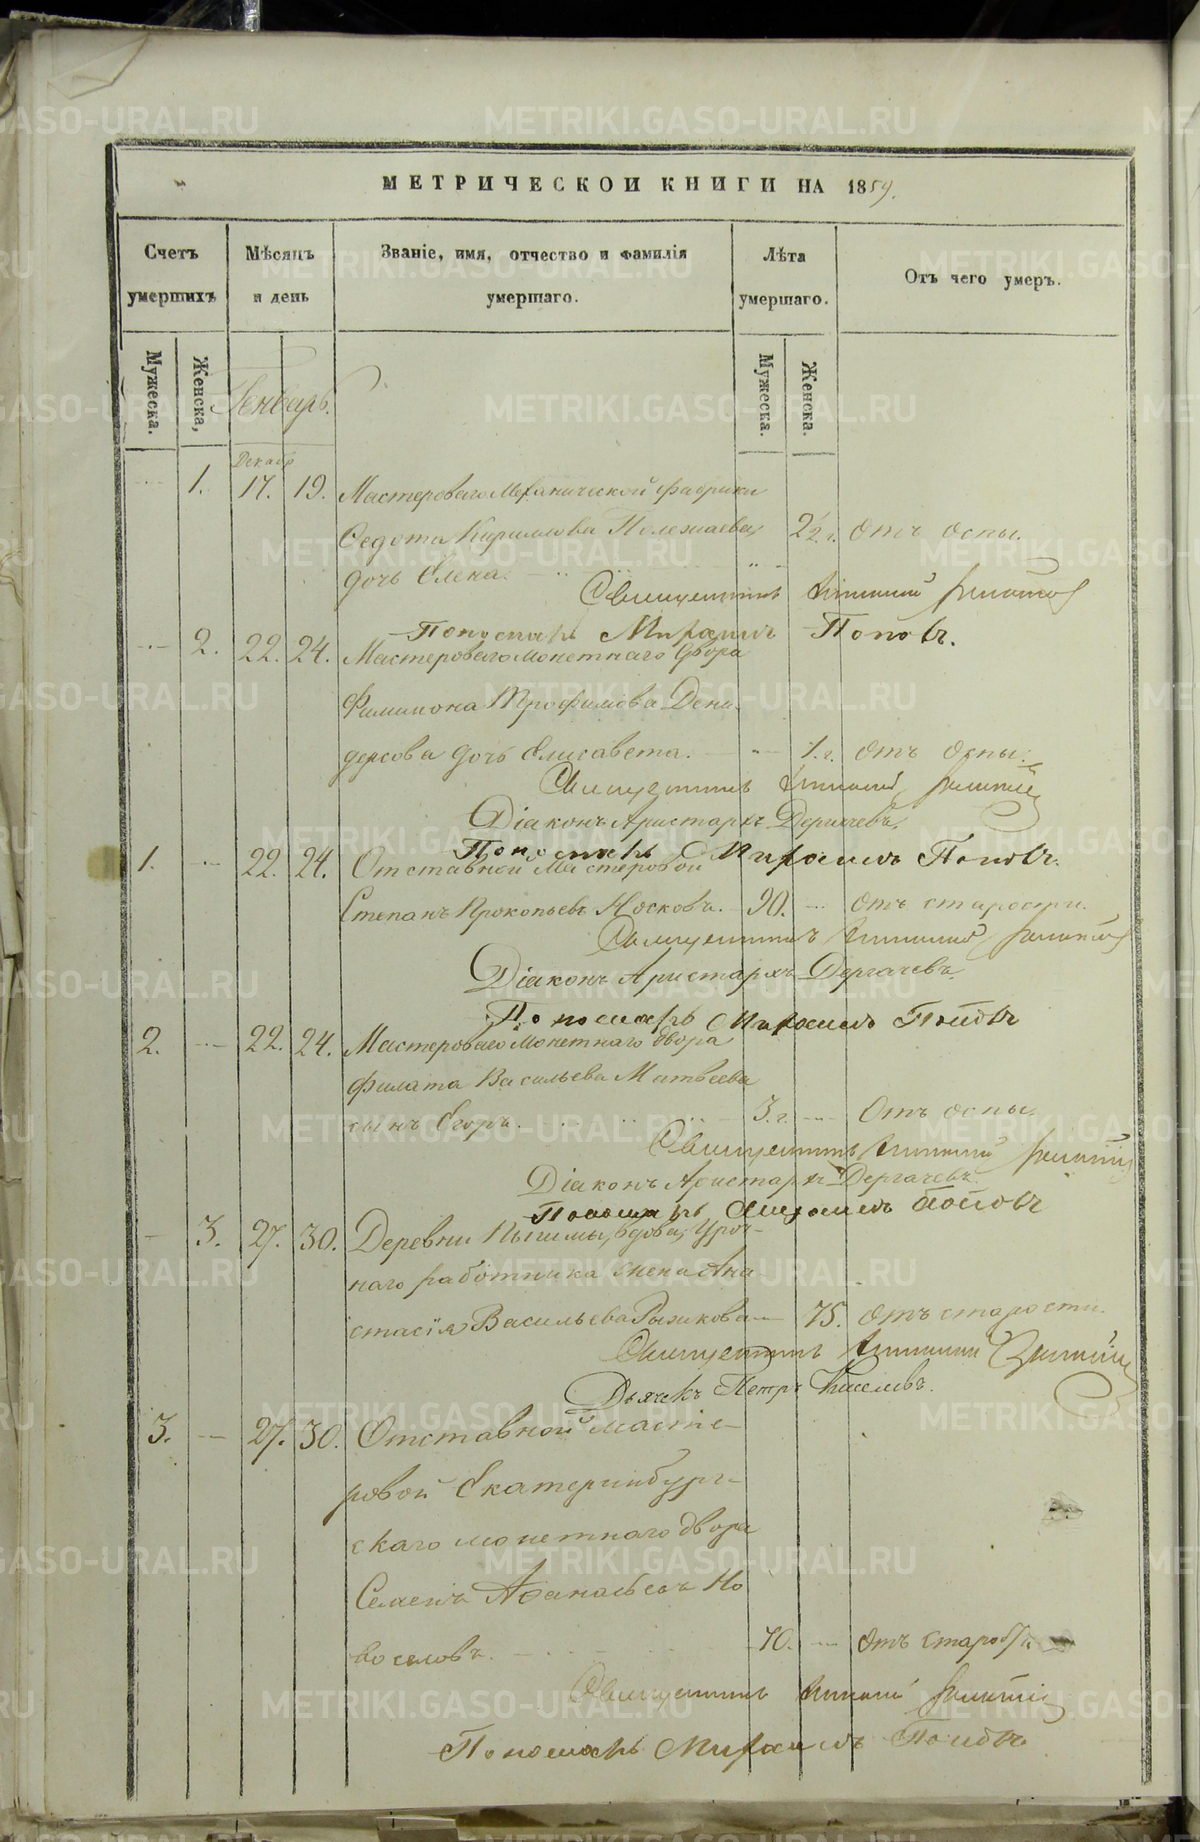 МЕТРИЧЕСКОИ КНИГИ НА 1859.
Счетъ умершихъ
Мѣсяцъ и день
Званіе, имя, отчество и фамилія умершаго.
Лѣта умершаго.
Отъ чего умеръ.
Мужеска.
Женска,
Мужеска.
Женска.
Генварь.
Декабр
1. 17. 19. Мастероваго Механической фабрики
Федота Кирилова Полежаева 2½ г. Отъ оспы.
дочь Елена.
Священникъ
Пономарь Мирониъ Поповъ.
2. 22. 24. Мастероваго Монетнаго двора
Филимона Трофимова Дени-
дерсова дочь Елисавета. 1.г. Отъ оспы.
Священникъ
Діаконъ Аристархъ Дергачевъ,
Пономарь Поповъ.
1. 22. 24. Отставной Мастеровой
Степанъ Прокопьевъ Носковъ. 90. Отъ старости.
Священникъ
Діаконъ Аристархъ Дергачевъ
Пономарь Поповъ
2. 22. 24. Мастероваго Монетнаго двора
Филата Васильева Матвеева
сынъ Егоръ. 3.г. Отъ оспы.
Священникъ
Діаконъ Аристархъ Дергачевъ.
Пономарь Поповъ
3. 27. 30. Деревни Пышмы, вдова, Уроч-
наго работника жена Ана-
стасія Васильева Рыжкова 75. Отъ старости.
Священникъ
Дьячекъ Петръ Киселевъ.
3. 27. 30. Отставной масте-
ровой Екатеринбург-
скаго монетнаго двора
Семенъ Афанасьевъ Но
воселовъ. 70. Отъ старости.
Священникъ
Пономарь Поповъ
METRIKI.GASO-URAL.RU